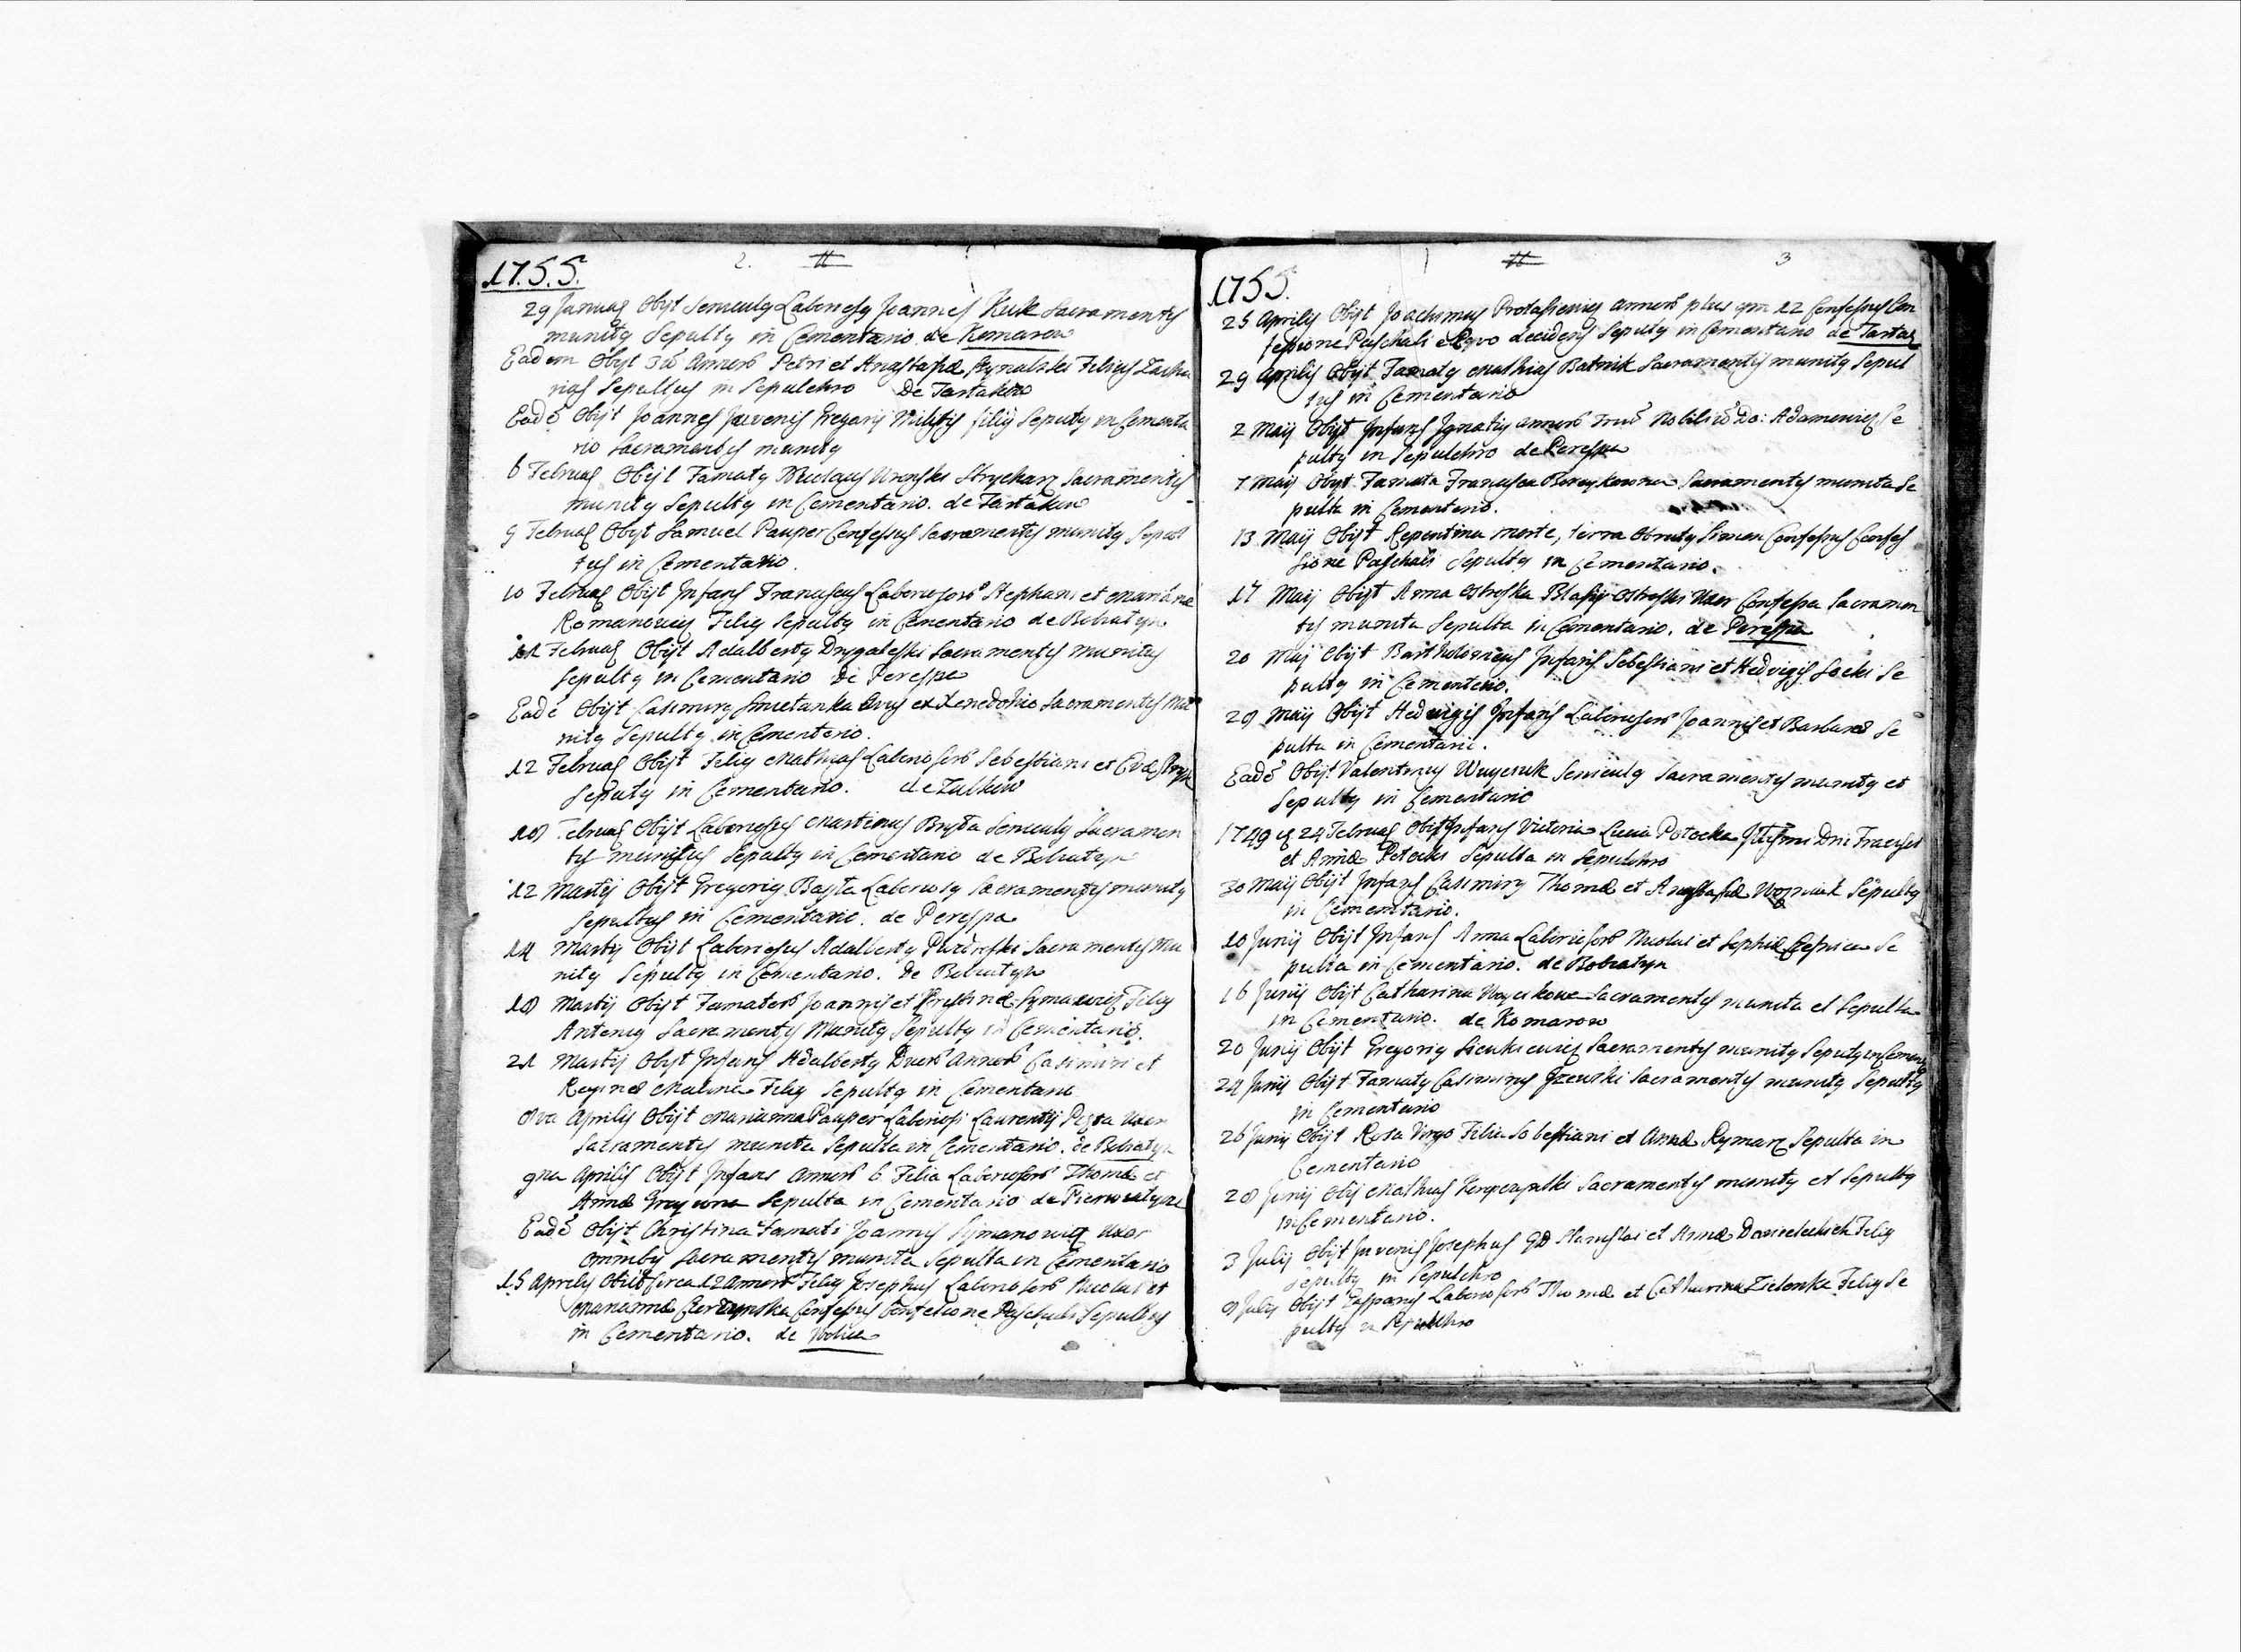 2. H
1755.
29 Januarij Obijt Seniculus Laboriosus Joannes Kuk Sacramentis
munitus Sepultus in Cementario de Komarow
Eadem Obijt 3um Annorum Petri et Anastasiae Filius Zacha
rias Sepultus in Sepulchro De Tartakow
Eadem Obijt Joannes Juvenis Gregorij Militis filius Sepultus in Cementa
rio Sacramentis munitus
6 Februarij Obijt Famatus Nicolaus Strycharz Sacramentis
munitus Sepultus in Cementario. de Tartakow
9 Februarij Obijt Samuel Pauper Confessus Sacramentis munitus Sepul
tus in Cementario.
10 Februarij Obijt Infans Franciscus Laboriosorum Stephani et Mariannae
Romanowicz Filius Sepultus in Cementario de Bobiatyn
11 Februarij Obijt Adalbertus Drygalski Sacramentis munitus
Sepultus in Cementario de Perespa
Eadem Obijt Casimirus Smietanka Avus ex Xenodochio Sacramentis mu
nitus Sepultus in Cementario.
12 Februarij Obijt Filius Mathias Laboriosorum Sebestiani et Evae
Sepultus in Cementario. de Zubkow
18 Februarij Obijt Laboriosus Martinus Bryta Seniculus Sacramen
tis munitus Sepultus in Cementario de Bobiatyn
12 Martij Obijt Gregorius Bayta Laboriosus Sacramentis munitus
Sepultus in Cementario. de Perespa
14 Martij Obijt Laboriosus Adalbertus Sacramentis mu
nitus Sepultus in Cementario. de Bobiatyn
18 Martij Obijt Famatorum Joannis et Christinae Symanowicz Filius
Antonius Sacramentis munitus Sepultus in Cementario.
21 Martij Obijt Infans Adalbertus Duorum Annorum Casimiri et
Reginae Malina Filius Sepultus in Cementario
8va Aprilis Obijt Marianna Pauper Laboriosi Laurentij Pizta Uxor
Sacramentis munita Sepulta in Cementario. de Bobiatyn
9na Aprilis Obijt Infans Annorum 6 Filia Laboriosorum Thomae et
Annae Sepulta in Cementario de
Eadem Obijt Christina Famati Joannis Symanowicz Uxor
Omnibus Sacramentis munita Sepulta in Cementario
15 Aprilis Obijt Circa 12 Annorum Filius Josephus Laboriosorum Nicolai et
Mariannae Confessus Confessione Paschali Sepultus
in Cementario. de Wolica
H 3
1755.
25 Aprilis Obijt Joachimus Protasiewicz Annorum plus qm 22 Confessus Con
fessione Paschali e Equo decidens Sepultus in Cementario de Tartak
29 Aprilis Obijt Famatus Mathias Batnik Sacramentis munitus Sepul
tus in Cementario
2 Maij Obijt Infans Ignatius Annorum Trium Nobilium Do: Adamowicz Se
pultus in Sepulchro de Perespa
7 Maij Obijt Famata Francisca Sacramentis munita Se
pulta in Cementario.
13 Maij Obijt Repentina morte, terra obrutus Simon Confessus Confes
sione Paschali Sepultus in Cementario.
17 Maij Obijt Anna Ostroska Blasij Ostroski Uxor Confessa Sacramen
tis munita Sepulta in Cementario. de Perespa
20 Maij Obijt Bartholomeus Infans Sebestiani et Hedvigis Socki Se
pultus in Cementerio.
29 Maij Obijt Hedvigis Infans Laboriosorum Joannis et Barbarae Se
pulta in Cementario.
Eadem Obijt Valentinus Wuyciuk Seniculus Sacramentis munitus et
Sepultus in Cementario
1749 24 Februarij Obijt Infans Victoria Lucia Potocka Illustrissimi Dni Francisci
et Annae Potocki Sepulta in Sepulchro
30 Maij Obijt Infans Casimirus Thomae et Anastasiae Wozniak Sepultus
in Cementario.
10 Junij Obijt Infans Anna Laboriosorum Nicolai et Sophiae Se
pulta in Cementario. de Bobiatyn
16 Junij Obijt Catharina Woycikowa Sacramentis munita et Sepulta
in Cementario. de Komarow
20 Junij Obijt Gregorius Sacramentis munitus Sepultus in Cement
24 Junij Obijt Famatus Casimirus Sacramentis munitus Sepultus
in Cementario
26 Junij Obijt Rosa Virgo Filia Sebestiani et Annae Rymarz Sepulta in
Cementario
28 Junij Obij Mathias Sacramentis munitus et Sepultus
in Cementario.
3 Julij Obijt Juvenis Josephus GD Stanislai et Annae Filius
Sepultus in Sepulchro
8 Julij Obijt Gasparus Laboriosorum Thomae et Catharinae Zielonka Filius Se
pultus in Sepulchro